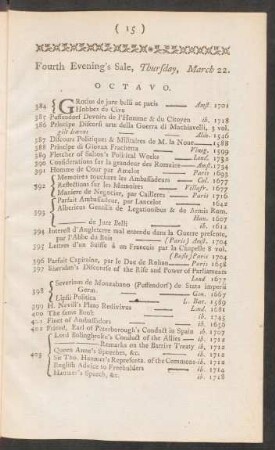 ( 15 )
Fourth Evening's Sale, Thursday, March 22.
OCTAVO.
384 { Grotius de jure belli ac pacis — Amst. 1701
Hobbes de Cive
387 Puffendorf Devoirs de l'Homme & du Citoyen ib. 1718
386 Principe Discorsi arte della Guerra di Macchiavelli, 3 vol.
gilt leaves — Aldus 1546
387 Discours Politiques & Militaires de M. la Noue — 1588
388 Principe di Giovan Frachetta — Venet. 1599
389 Fletcher of Salton's Political Works — Lond. 1732
390 Considerations sur la grandeur des Romains — Amst. 1734
391 Homme de Cour par Amelot — Paris 1693
392 { Memoires touchant les Ambassadeurs — Col. 1677
Reflections sur les Memoires — Villefr. 1677
Maniere de Negocier, par Callieres — Paris 1716
Parfait Ambassadeur, par Lancelot — 1642
393 { Albericus Gentilis de Legationibus & de Armis Rom.
Han. 1607
de Jure Belli — ib. 1612
394 Interest d'Angleterre mal entendu dans la Guerre presente,
par l'Abbe du Bois — [Paris] Amst. 1704
395 Lettres d'un Suisse à un Francois par la Chapelle 8 vol.
[Basle] Paris 1704
396 Parfait Capitaine, par le Duc de Rohan — Paris 1658
397 Marsden's Discourse of the Rise and Power of Parliaments
Lond 1677
398 { Severinus de Monzabano (Puffendorf) de Statu imperii
Germ. — Gen. 1667
Lipsii Politica — L. Bat. 1589
399 H. Nevill's Plato Redivivus — Lond. 1681
400 The same Book — ib. 1745
401 Finet of Ambassadors — ib. 1656
402 Friend, Earl of Peterborough's Conduct in Spain ib. 1707
403 { Lord Bolingbroke's Conduct of the Allies — ib. 1712
Remarks on the Barrier Treaty ib. 1712
Queen Anne's Speeches, &c. — ib. 1712
Sir Tho. Hanmer's Represent. of the Commons ib. 1712
English Advice to Freeholders — ib. 1714
Hanmer's Speech, &c. — ib. 1718